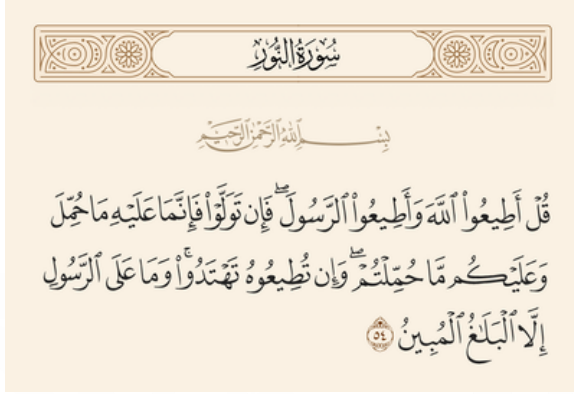 سُورَةُ النُّورِ
بِسْمِ اللَّهِ الرَّحْمَٰنِ الرَّحِيمِ
قُلْ أَطِيعُوا۟ ٱللَّهَ وَأَطِيعُوا۟ ٱلرَّسُولَ ۖ فَإِن تَوَلَّوْا۟ فَإِنَّمَا عَلَيْهِ مَا حُمِّلَ
وَعَلَيْكُم مَّا حُمِّلْتُمْ ۖ وَإِن تُطِيعُوهُ تَهْتَدُوا۟ ۚ وَمَا عَلَى ٱلرَّسُولِ
إِلَّا ٱلْبَلَٰغُ ٱلْمُبِينُ ٥٤